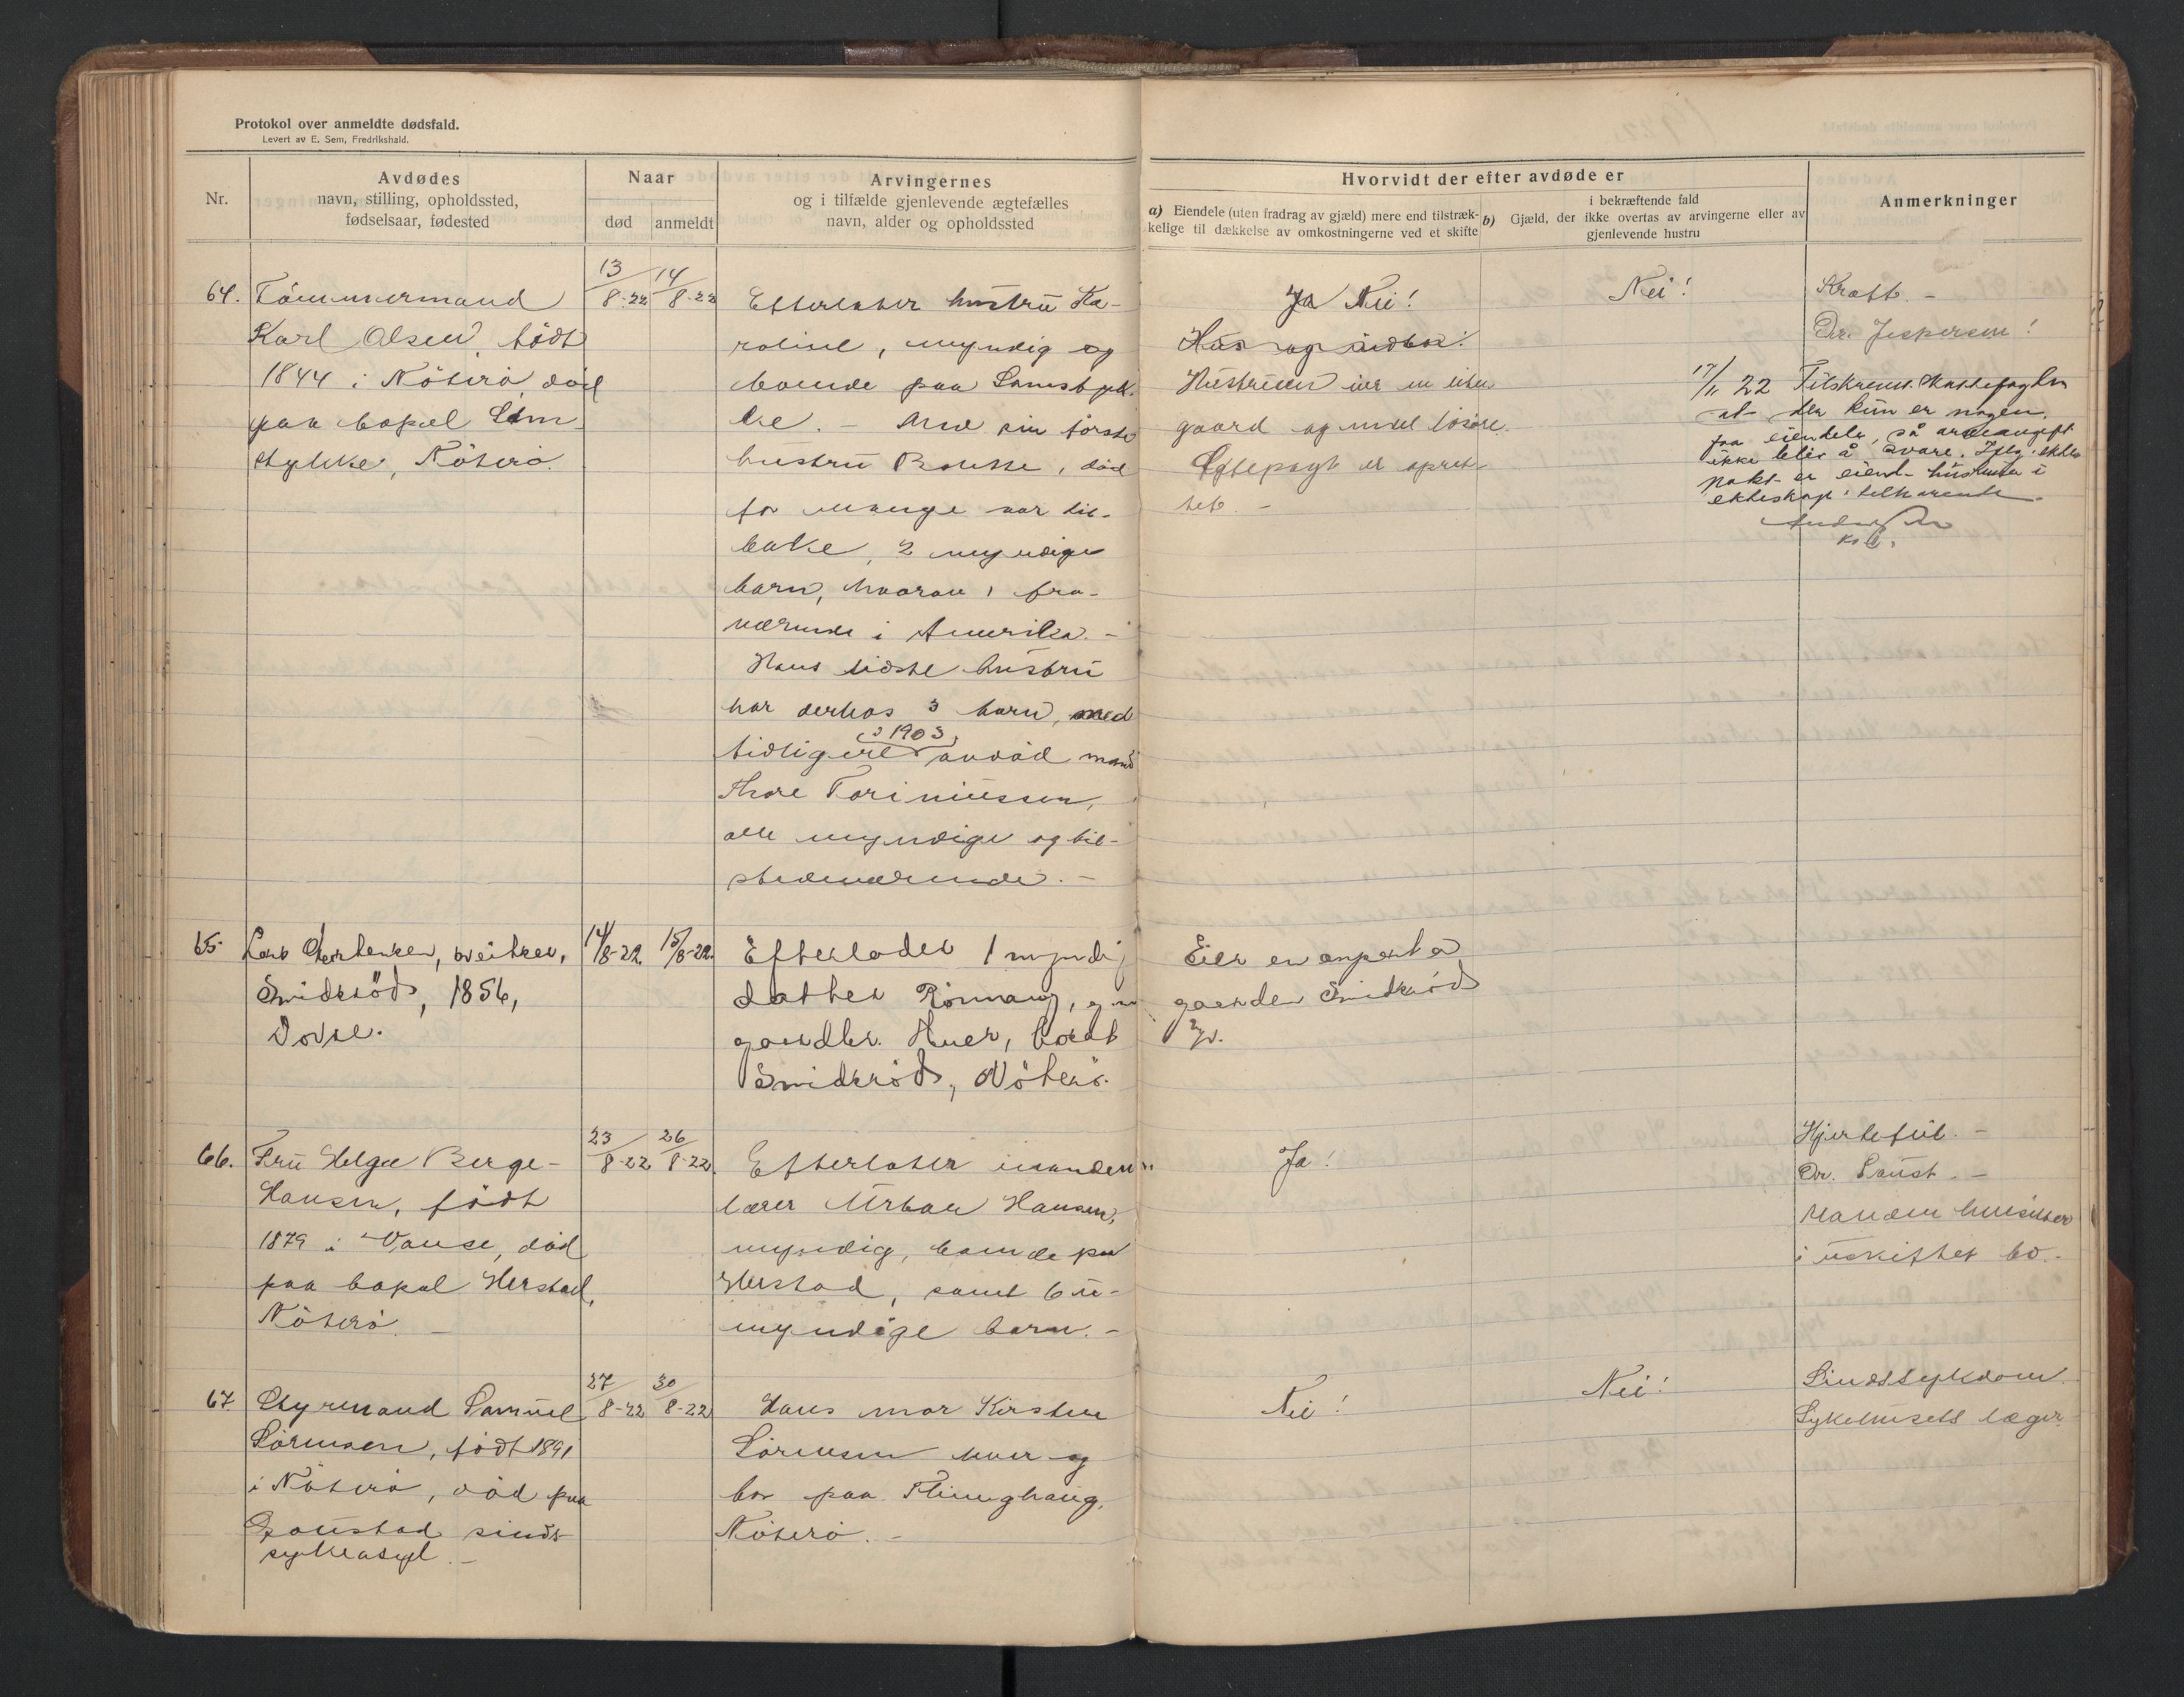 Protokol over anmeldte dødsfald.
Levert av E. Sem, Fredrikshald.
Nr.
Avdødes
navn, stilling, opholdssted,
fødselsaar, fødested
Naar
død
anmeldt
Arvingernes
og i tilfælde gjenlevende ægtefælles
navn, alder og opholdssted
Hvorvidt der efter avdøde er
a) Eiendele (uten fradrag av gjæld) mere end tilstræk-
kelige til dækkelse av omkostningerne ved et skifte
i bekræftende fald
b) Gjæld, der ikke overtas av arvingerne eller av
gjenlevende hustru
Anmerkninger
64.
Tömmermand
Karl Olsen, född
1844 i Nöterö död
paa bopæl
stykke, Nöterö.
13/8-22
14/8-22
Efterlater hustru Ka-
roline, myndig og
boende paa
ke. - Med sin første
hustru, död
for mange aar til-
bake, 2 myndige
barn, hvorav 1 fra-
værende i Amerika. -
Hans sidste hustru
har derhos 3 barn, med
(i 1903)
tidligere avdöd mand
Thore
alle myndige og til-
stedeværende. -
Ja Nei!
Hus og indbo!
Hustruen eier en liten
gaard og noget lösöre.
Egtepagt er opret-
tet. -
Nei!
Kræft. -
Dr. Jespersen!
17/11 22
at der kun er nogen
faa eiendele, så arveavgift
ikke blir å svare. Iflg. ekte-
pakt er hustruen i
65
14/8-22.
15/8-22.
Smidsröd, 1856,
Efterlader 1 myndig
datter
gaardbr. Huer, bosat
Smidsröd, Nöterö.
Eier en anpart a
gaarden Smidsröd
66.
Fru Helga Berge-
Hansen, född
1879 i Vanse, död
paa bopæl Herstad,
Nöterö. -
23/8-22
26/8-22.
Efterlater manden
lærer Urban Hansen,
myndig, boende paa
Herstad, samt 6 u-
myndige barn. -
Ja!
Hjertefeil. -
Dr. Paust. -
Manden hensitter
i uskiftet bo. -
67.
Styrmand Samuel
Sörensen, född 1891
i Nöterö, död paa
Gaustad sinds-
sykeasyl. -
27/8-22
30/8-22
Hans mor Kirstine
Sörensen lever og
bor paa
Nöterö. -
Nei!
Nei!
Sindssykdom.
Sykehusets læger.